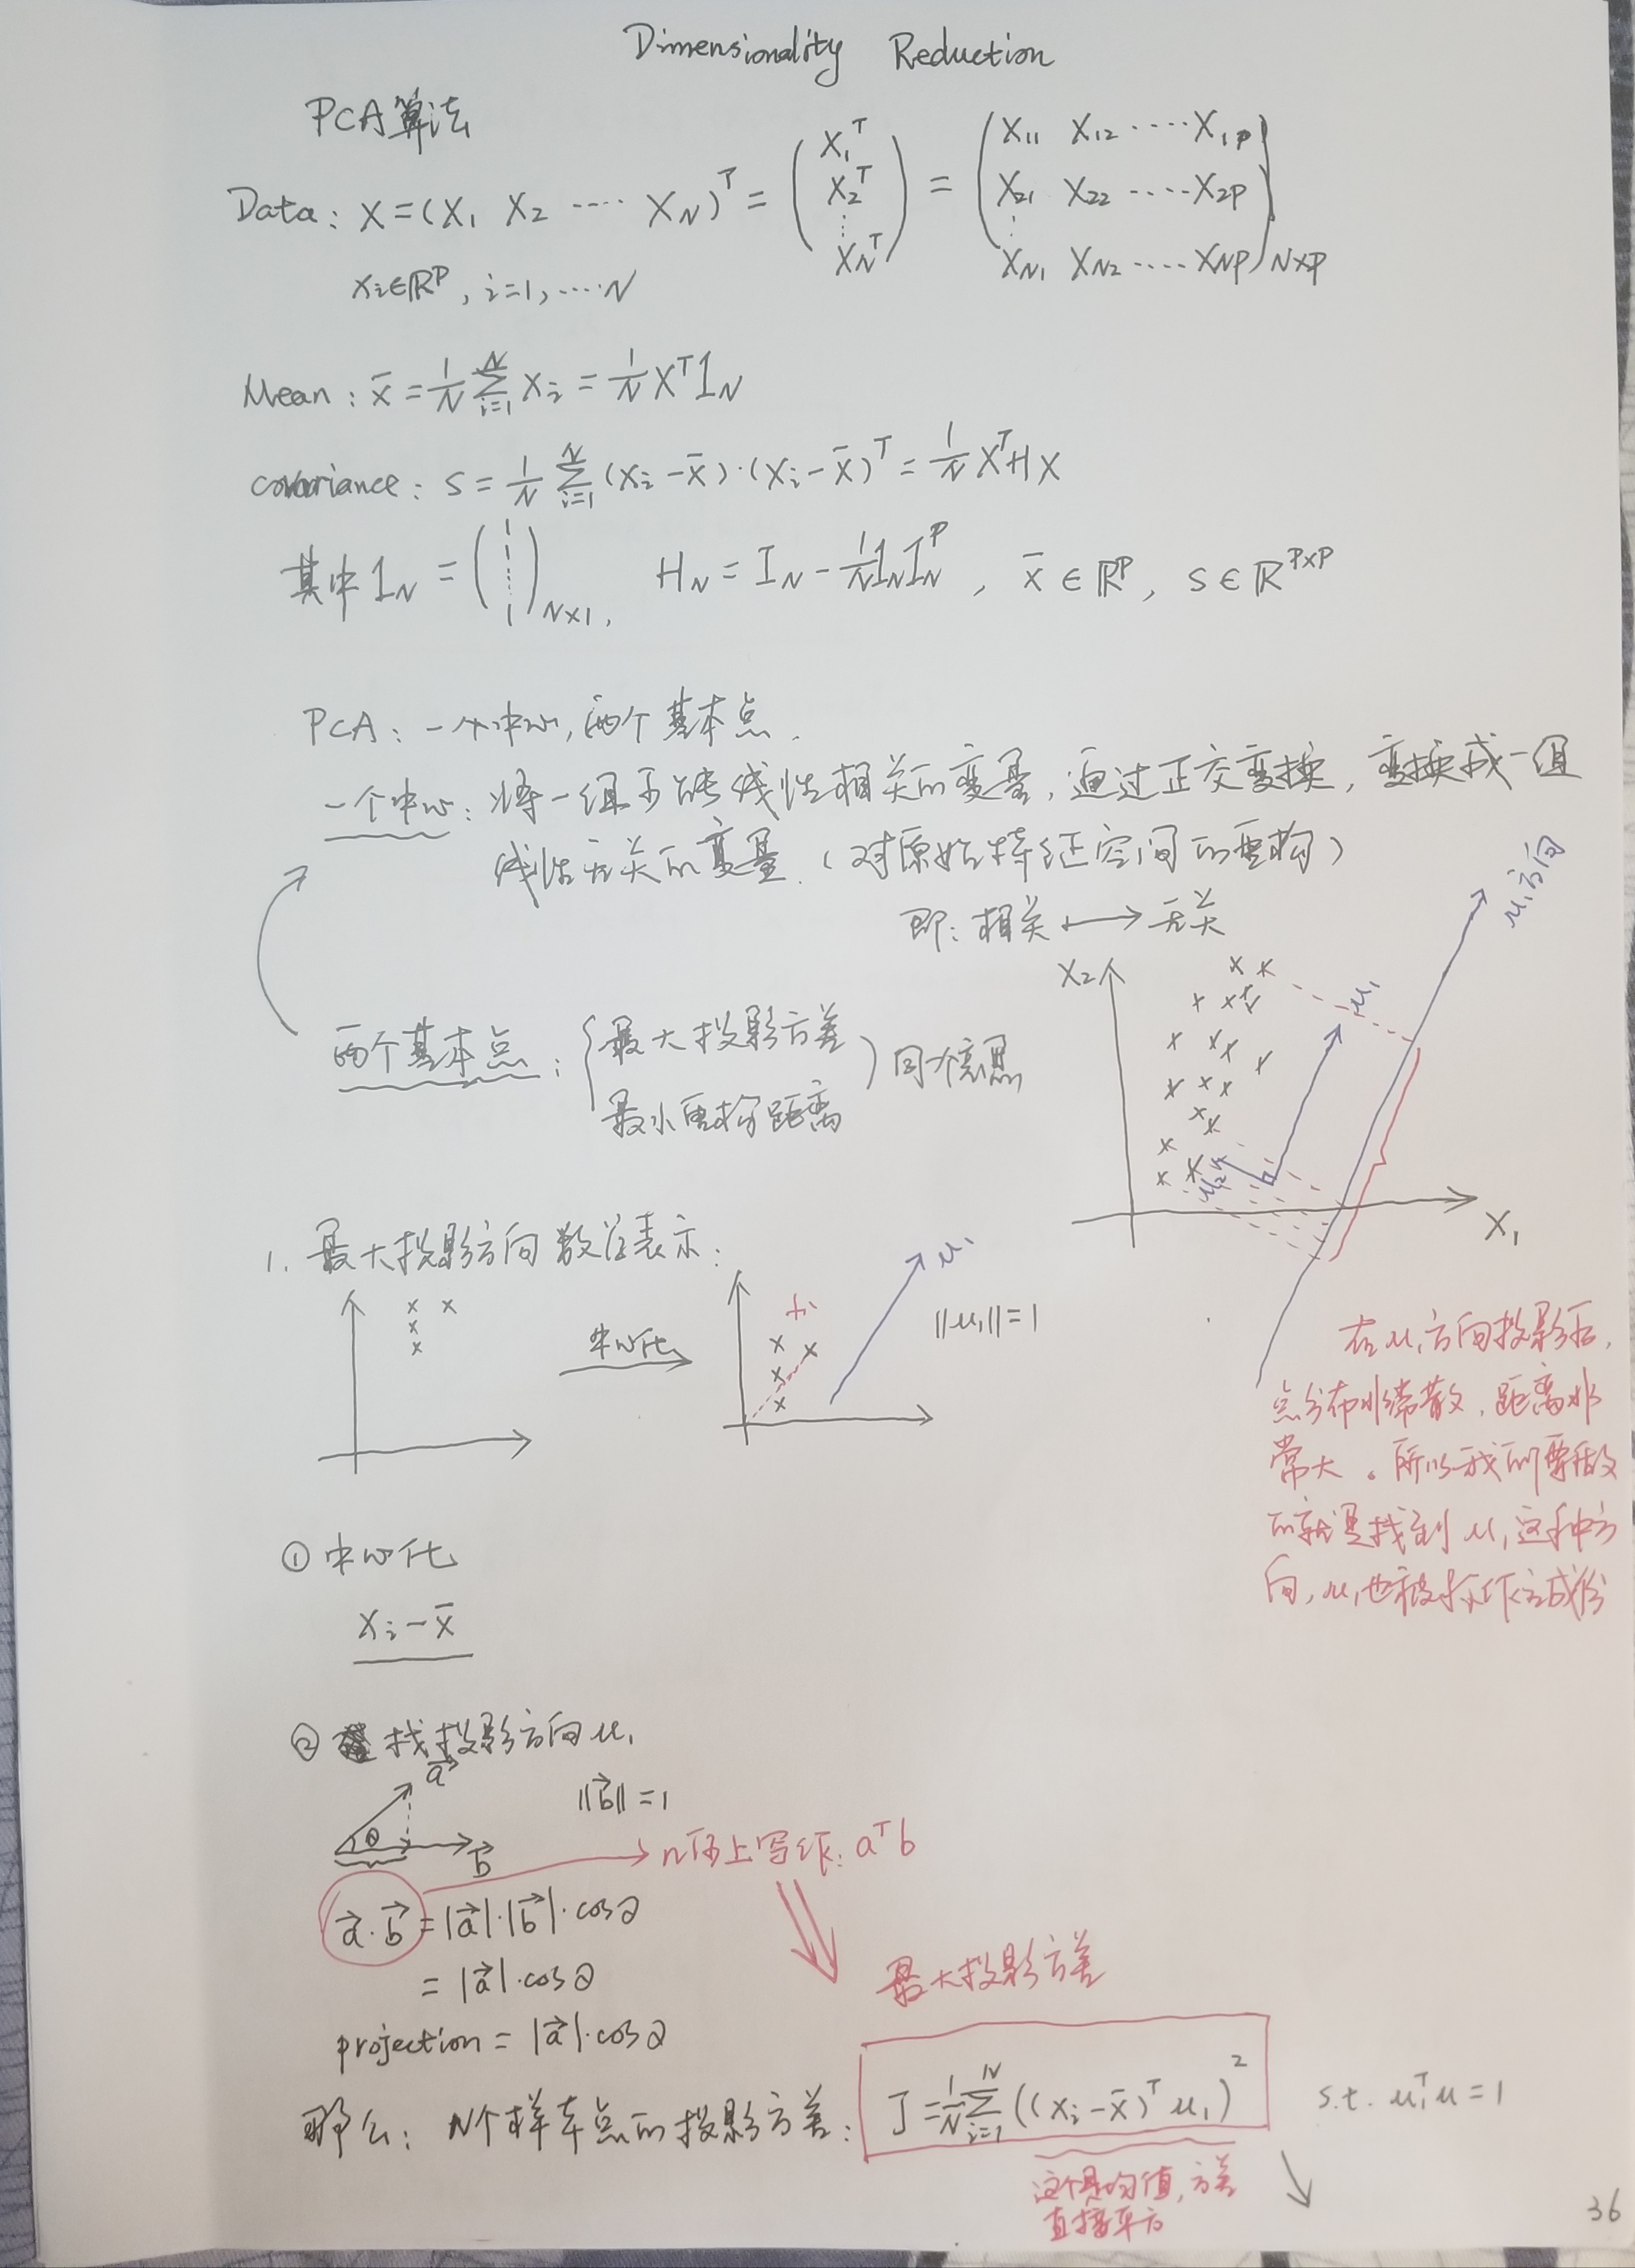 Dimensionality Reduction
PCA算法
Data: X=(X₁ X₂ ···· X_N)ᵀ = (X₁ᵀ X₂ᵀ ⋮ X_Nᵀ) = (X₁₁ X₁₂ ····· X₁ₚ
X₂₁ X₂₂ ····· X₂ₚ
⋮
X_N1 X_N2 ····· X_NP)N×P
xᵢ∈ℝᴾ, i=1, ····N
Mean: x̄ = 1/N Σ_{i=1}^{N} xᵢ = 1/N Xᵀ1_N
covariance: S = 1/N Σ_{i=1}^{N} (xᵢ-x̄)·(xᵢ-x̄)ᵀ = 1/N XᵀHX
其中 1_N = (1 ⋮ 1)N×1, H_N = I_N - 1/N 1_N 1_N^P, x̄∈ℝᴾ, S∈ℝ^{P×P}
PCA: 一个中心,两个基本点.
一个中心: 将一组可能线性相关的变量,通过正交变换,变换成一组
线性无关的变量.(对原始特征空间的重构)
即: 相关 ⟷ 无关
两个基本点: {最大投影方差
最小重构距离} 同个意思
X₂
X₁
u₁
u₂
u₁方向
在u₁方向投影后,
点分布非常散,距离非
常大。所以我们要做
的就是找到u₁这种方
向,u₁也被称作主成份
1. 最大投影方向数学表示:
中心化
xᵢ
u₁
‖u₁‖=1
① 中心化
xᵢ-x̄
② 找投影方向u₁
a⃗
θ
b⃗
‖b⃗‖=1
a⃗·b⃗ = |a⃗|·|b⃗|·cosθ
→ n维上写作: aᵀb
= |a⃗|·cosθ
projection = |a⃗|·cosθ
最大投影方差
那么: N个样本点的投影方差: J = 1/N Σ_{i=1}^{N} ((xᵢ-x̄)ᵀu₁)² s.t. u₁ᵀu=1
这个是均值,方差
直接平方
36